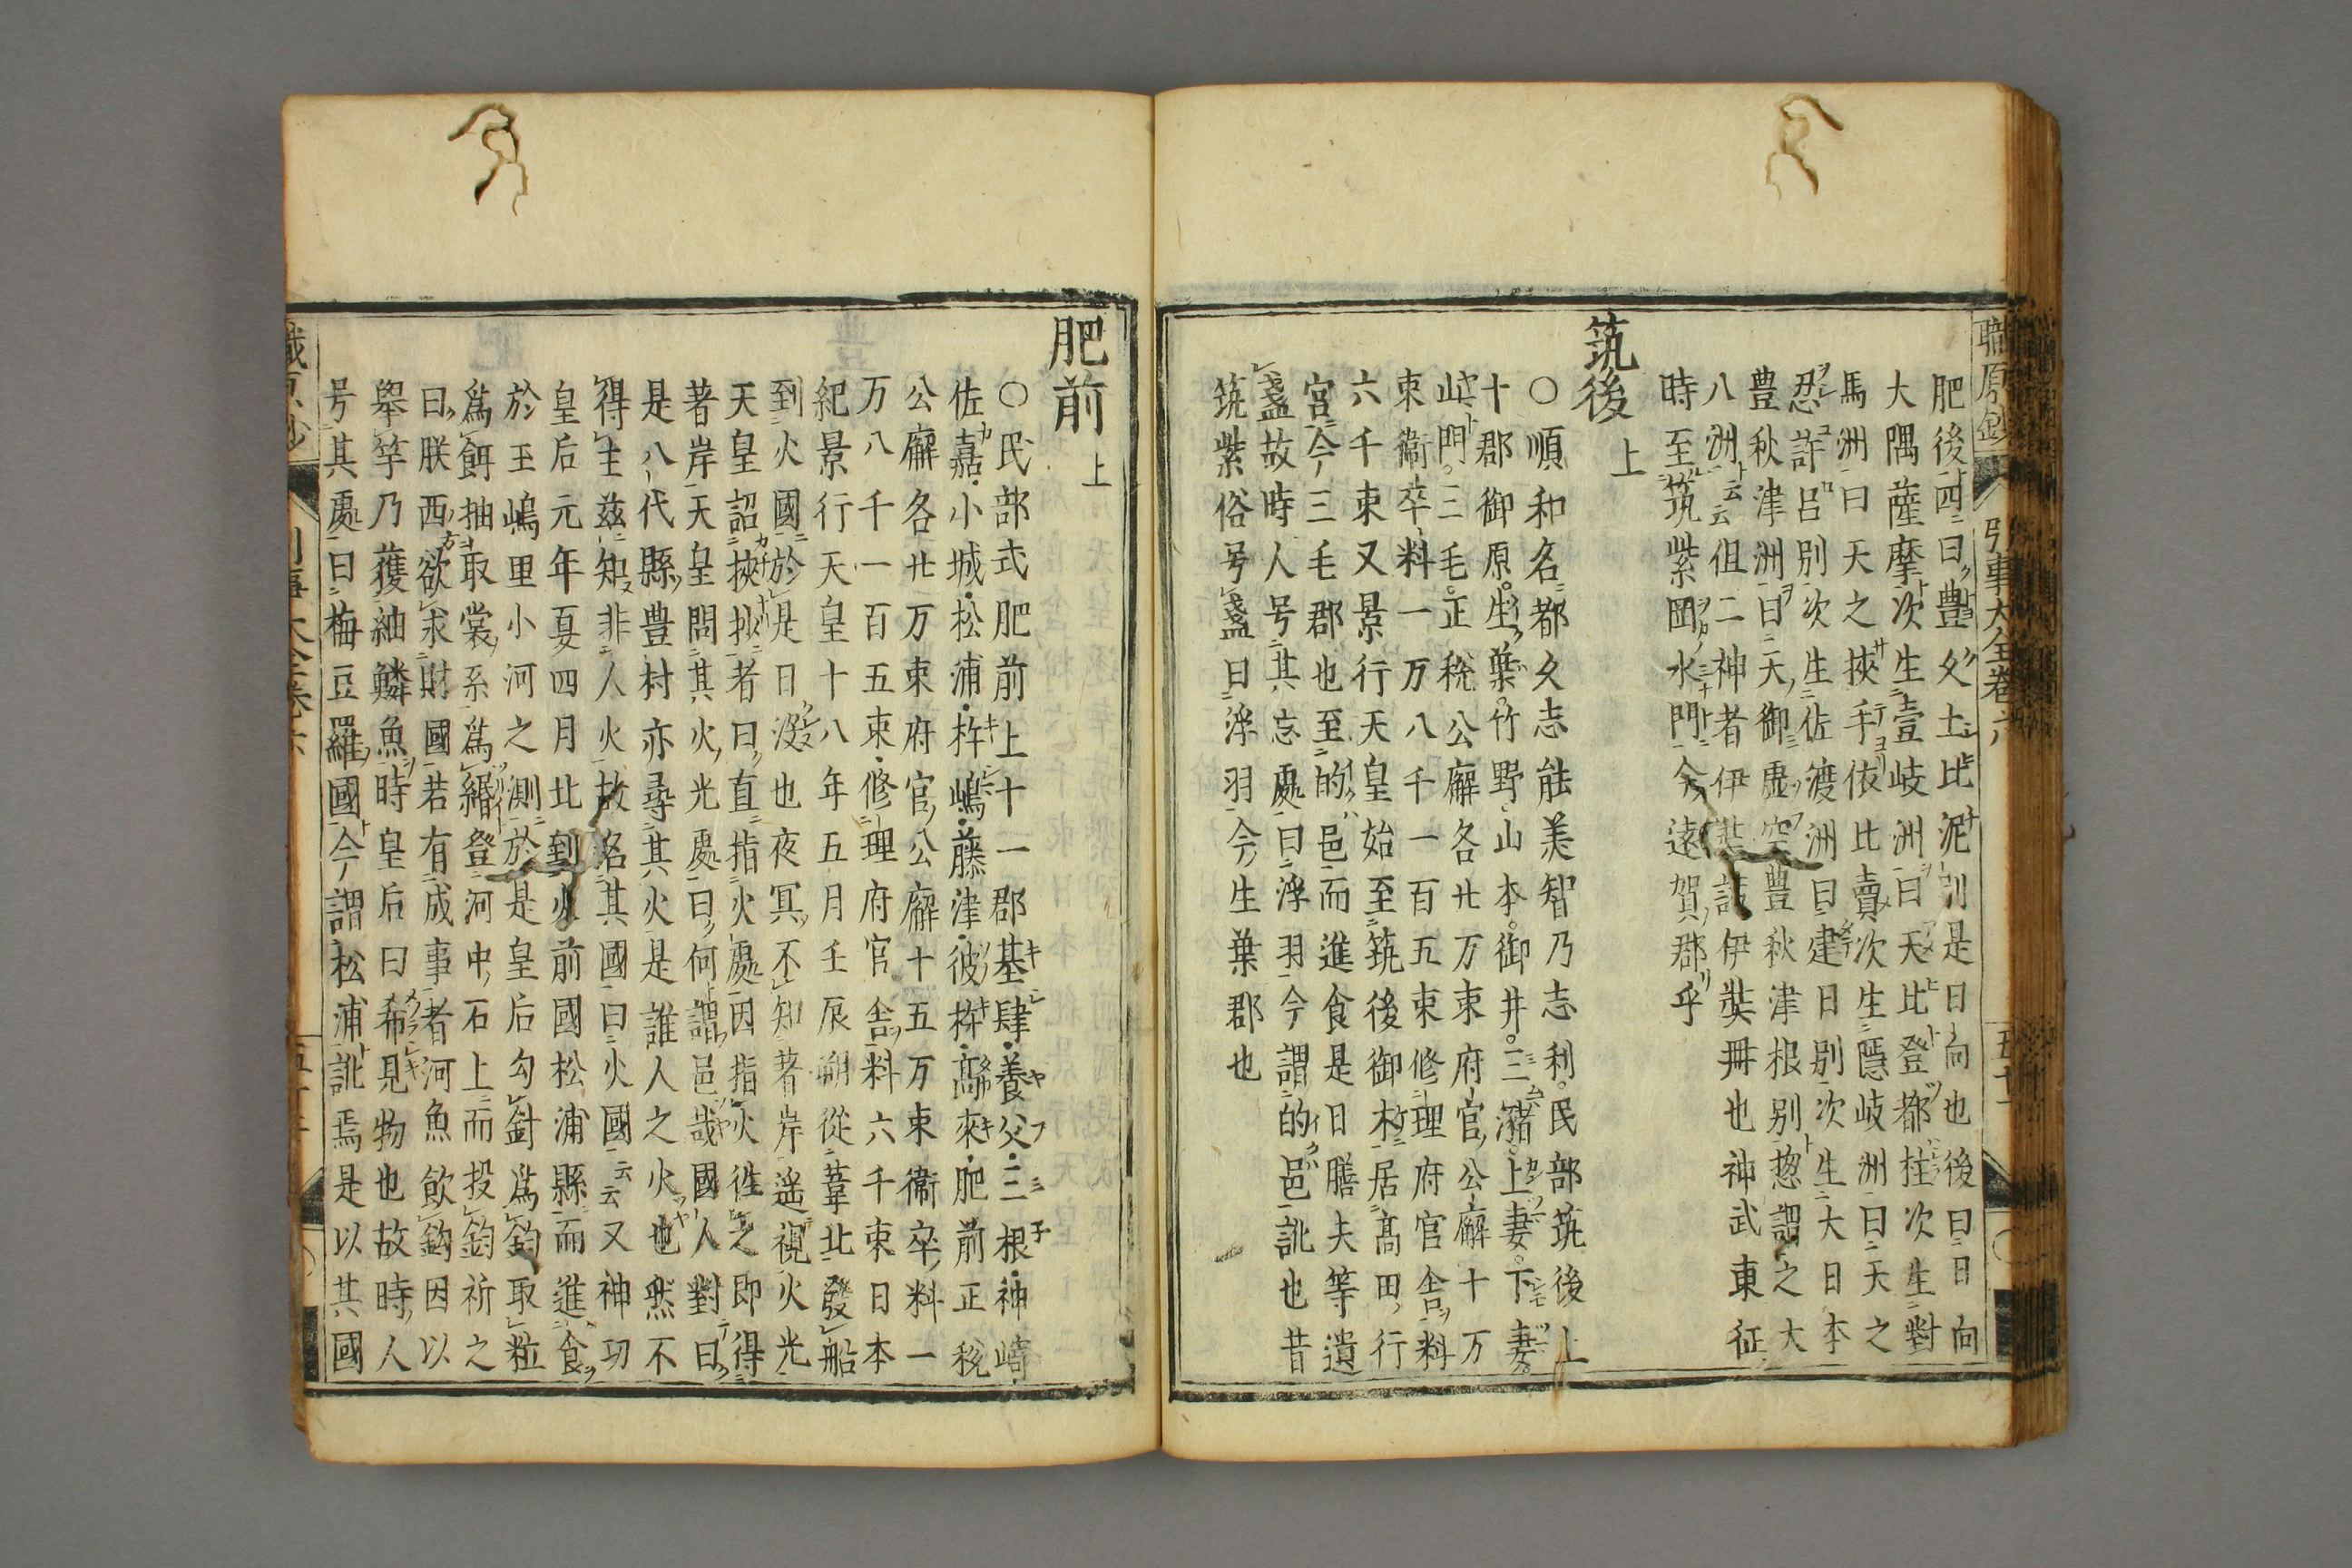 職原鈔 引事大全卷六
肥後四曰豊久士比泥別是日向也後曰日向
大隅薩摩次生壹岐洲曰天比登都柱次生對
馬洲曰天之挾手依比賣次生隱岐洲曰天之
忍許呂別次生佐渡洲曰建日別次生大日本
豊秋津洲曰天御虚空豊秋津根別惣謂之大
八洲云云伹二神者伊弉諾伊弉冊也神武東征
時至筑紫岡水門今遠賀郡乎
筑後 上
○順和名都久志能美智乃志利民部筑後上
十郡御原生葉竹野山本御井三瀦上妻下妻
山門三毛正税公廨各廿万束府官公廨十万
束衞卒料一万八千一百五束修理府官舎料
六千束又景行天皇始至筑後御木居髙田行
宮今三毛郡也至的邑而進食是日膳夫等遺
盞故時人号其忘處曰浮羽今謂的邑訛也昔
筑紫俗号盞曰浮羽今生葉郡也
肥前 上
○民部式肥前上十一郡基肄養父三根神埼
佐嘉小城松浦杵嶋藤津彼杵髙來肥前正税
公廨各廿万束府官公廨十五万束衞卒料一
万八千一百五束修理府官舎料六千束日本
紀景行天皇十八年五月壬辰朔從葦北發船
到火國於是日沒也夜冥不知著岸遥視火光
天皇詔挾抄者曰直指火處因指火徃之即得
著岸天皇問其火光處曰何謂邑哉國人對曰
是八代縣豊村亦尋其火是誰人之火也然不
得主茲知非人火故名其國曰火國云云又神功
皇后元年夏四月北到火前國松浦縣而進食
於玉嶋里小河之測於是皇后勾針爲鈎取粒
爲餌抽取裳糸爲緡登河中石上而投鈎祈之
曰朕西欲求財國若有成事者河魚飲鈎因以
擧竿乃獲細鱗魚時皇后曰希見物也故時人
号其處曰梅豆羅國今謂松浦訛焉是以其國